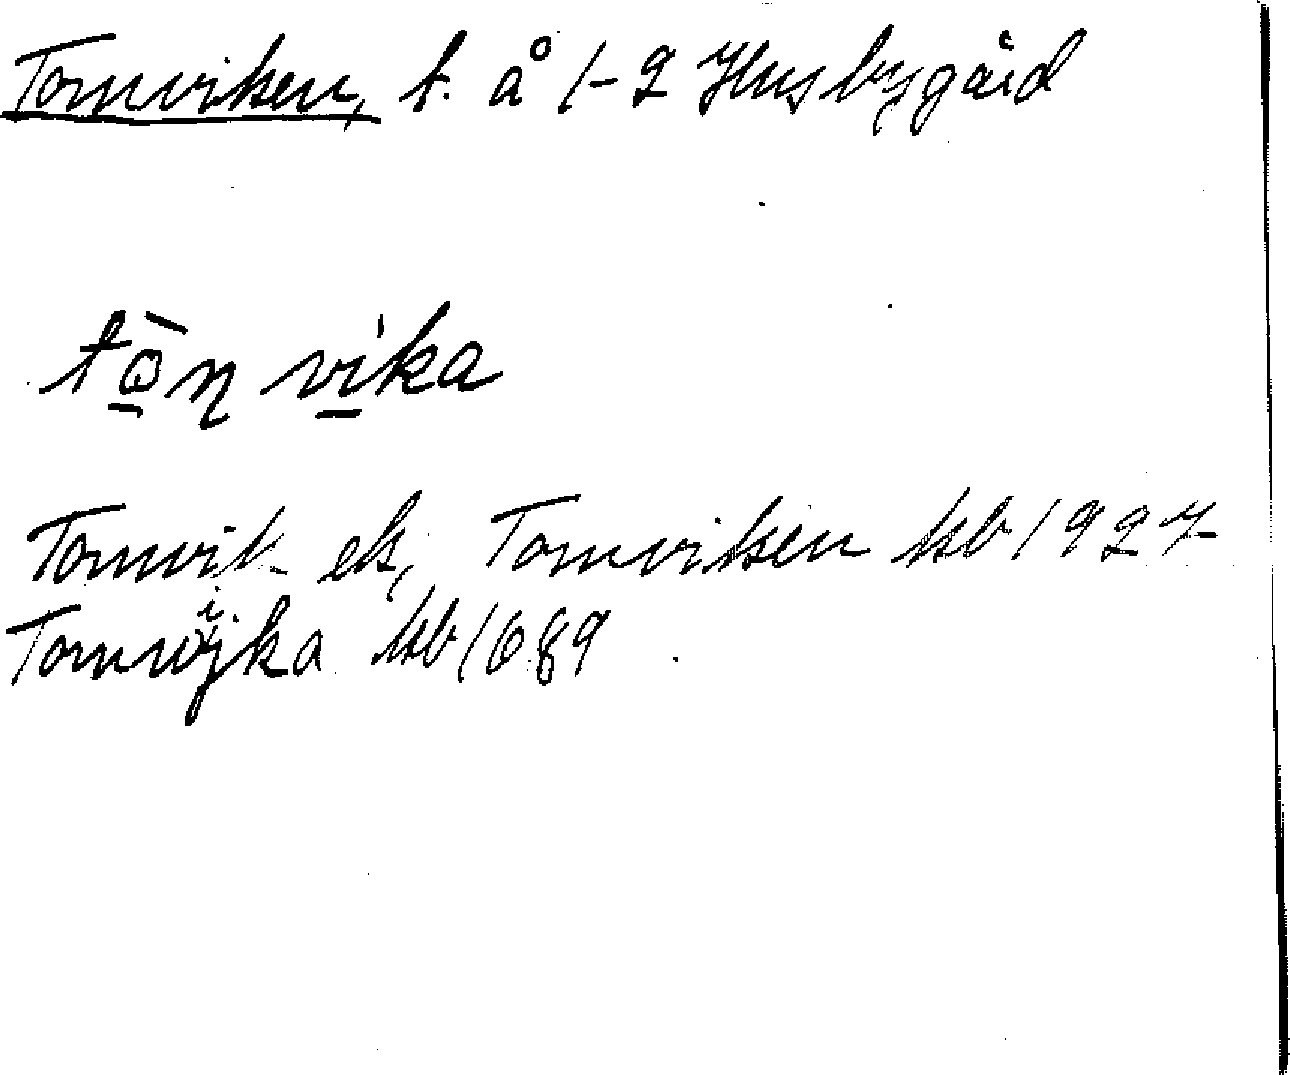 Tornviken, t. å 1-2 Husbygård
tòṇ vika
Tornvik ek, Tornviken kb 1927
Tornwijka kb 1689